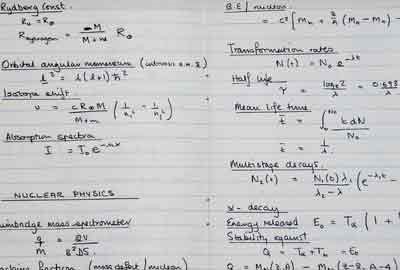 Rydberg Const.
R∞ = R∞
R hydrogen = M / M+m R∞
Orbital angular momentum (intrinsic a.m. s)
l² = l(l+1)ħ²
Isotope shift.
ν = cR∞M / M+m (1/n₁² − 1/n₂²)
Absorption spectra
I = I₀e^-nαx
NUCLEAR PHYSICS
Bainbridge mass spectrometer
q/m = 2V / B²DS
packing fraction (mass defect / nucleon)
B.E / nucleon
= c² [Mn + Z/A (MH − Mn) −
Transformation rates
N(t) = N₀ e^-λt
Half life
τ = loge2 / λ = 0.693 / λ
Mean life time
t̄ = ∫₀^N₀ t dN / N₀
t̄ = 1/λ
Multistage decays.
N₂(t) = N₁(0) λ₁ / λ₂ − λ₁ (e^-λ₁t −
α-decay
Energy released E₀ = Tα (1 +
Stability against
Q = Tα + Tb = E₀
Q = (Z, A) − (Z-2, A-4)